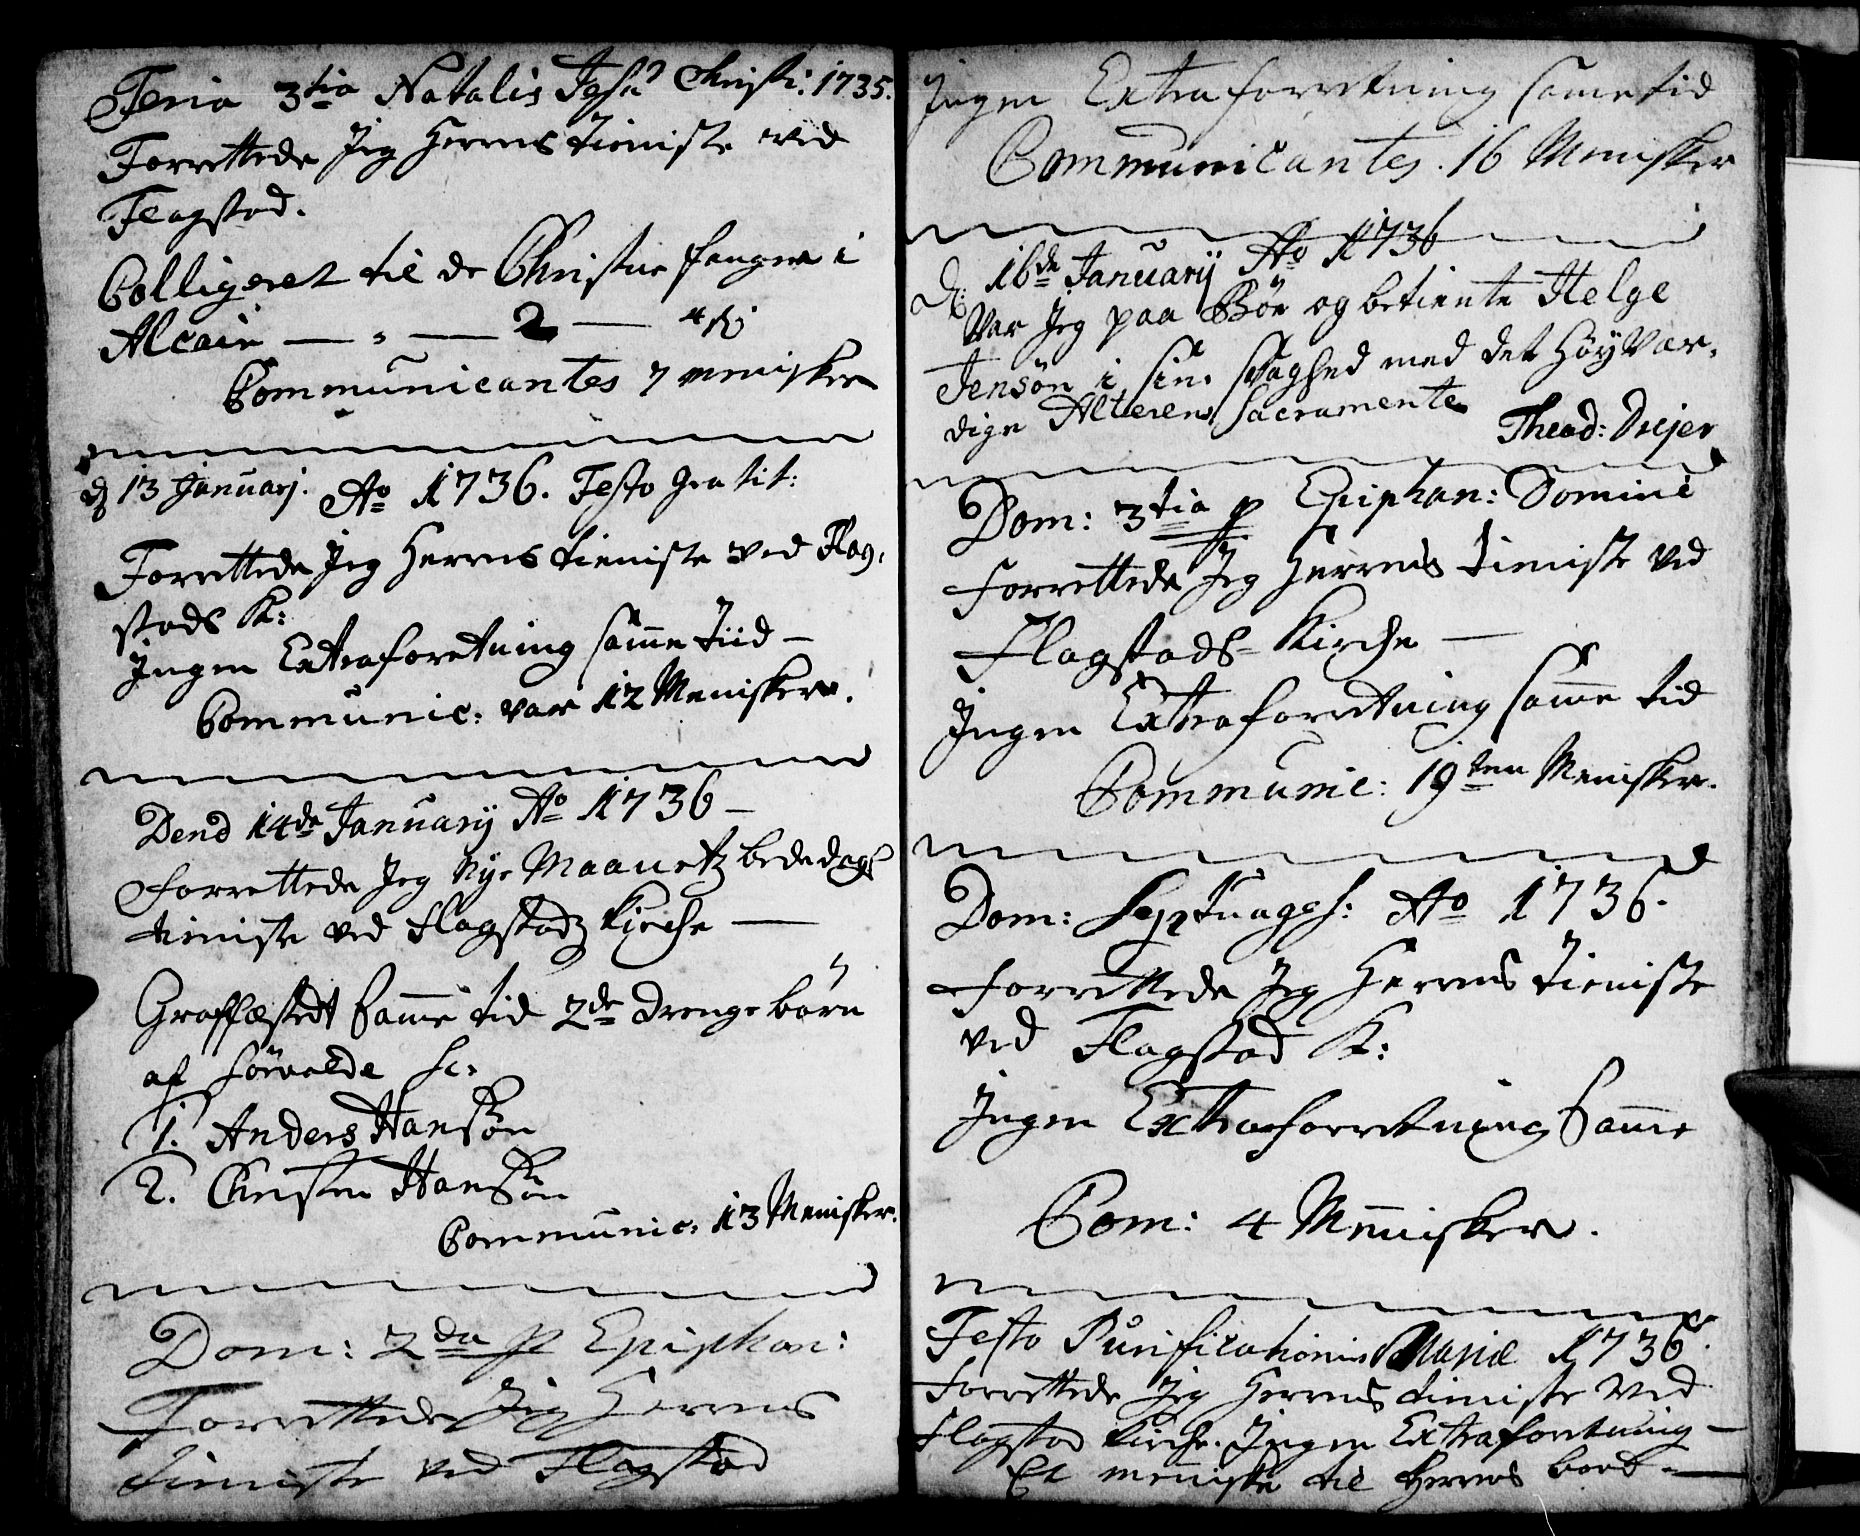 Feria 3tia Natalis Jesu Christi: 1735.
Forrettede Jeg Herrens tieniste ved
Flagstad.
Colligeret til de Christne fanger i
Alcair — " — 2 — 4 sk
Communicantes 7 menisker
d 13 Januarj. Ao 1736. Festo Gratit:
Forrettede Jeg Herrens tieniste ved Flag,
stads K:
Ingen Extraforetning samme Tiid —
Communic: var 12 Menisker.
Dend 14de Januarij Ao 1736 —
Forrettede Jeg Nye Maanetz bededags
tieniste ved Flagstadz Kirche —
Graffæstedt samme tid 2de drenge börn
af
1. Anders Hansön
2. Christen Hansön
Communic: 13 Menisker.
Dom: 2da p Epiphan:
Forrettede Jeg Herrens
tieniste ved Flagstad
Ingen Extraforretning same tid
Communicantes. 16 Menisker
d: 16de Januarij Ao 1736
Var Jeg paa Böe og betiente Helge
Jensön i sin svaghed med det Höyvær,
dige Alterens Sacramente
Thead: Drejer
Dom: 3tia p Epiphan: Domini
Forrettede Jeg Herrens tieniste ved
Flagstads Kirche —
Ingen Extraforretning samme tid
Communic: 19ten Menisker.
Dom: Septuages: Ao 1736.
Forrettede Jeg Herrens tieniste
ved Flagstad K:
Ingen Extraforretning samme
Com: 4 Menisker.
Festo Purificationis Mariæ 1736.
Forrettede Jeg Herrens tieniste ved
Flagstad Kirche. Ingen Extraforetning —
Et meniske til Herrens bord —